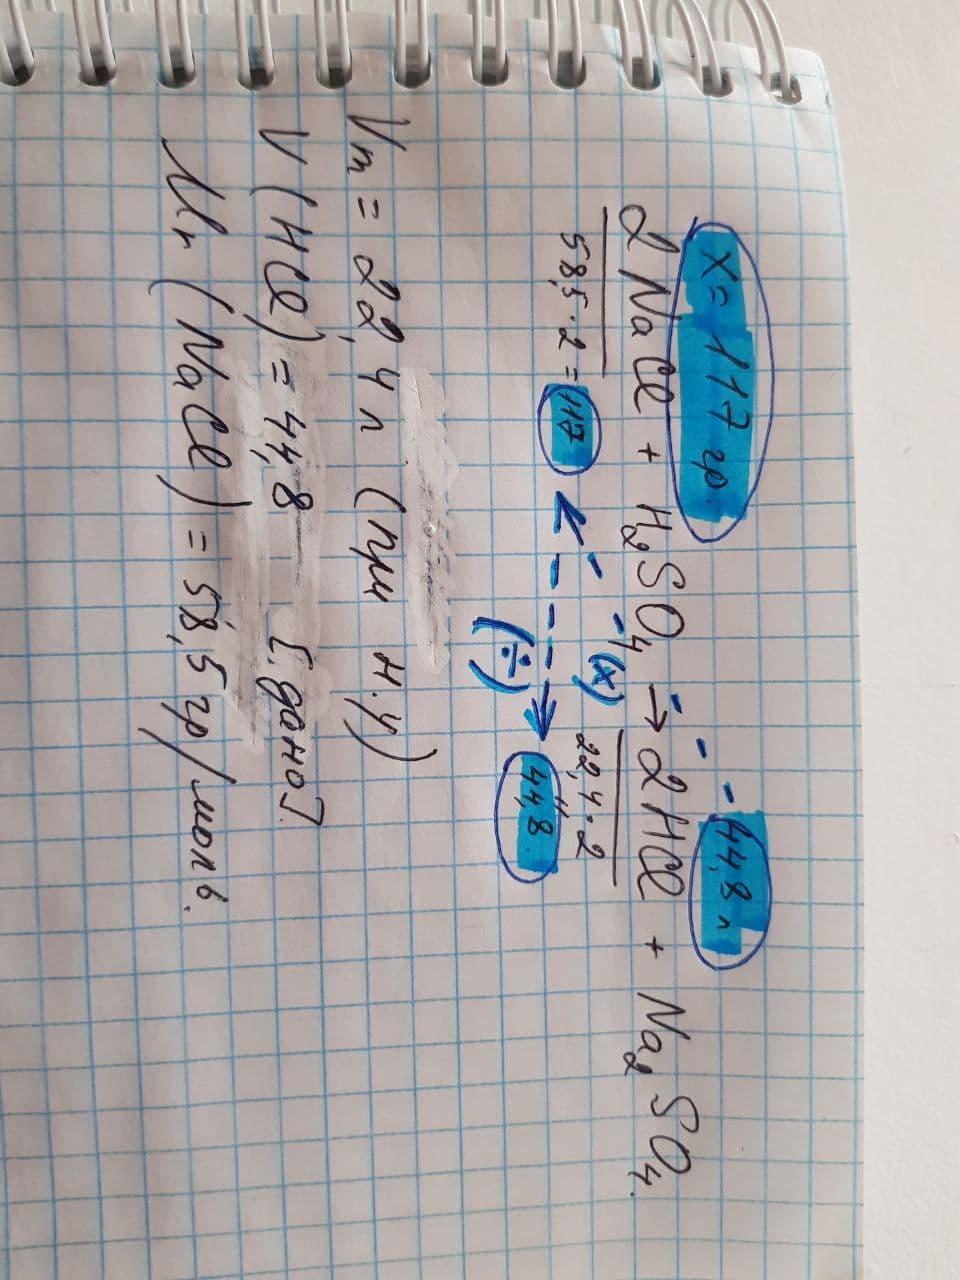 x = 117 гр. 44,8 л
2 NaCl + H2SO4 → 2HCl + Na2SO4.
58,5 · 2 = 117 (x) 22,4 · 2
(÷) 44,8.
Vm = 22,4 л (при н.у)
V (HCl) = 44,8 [дано].
Mr (NaCl) = 58,5 гр/моль.